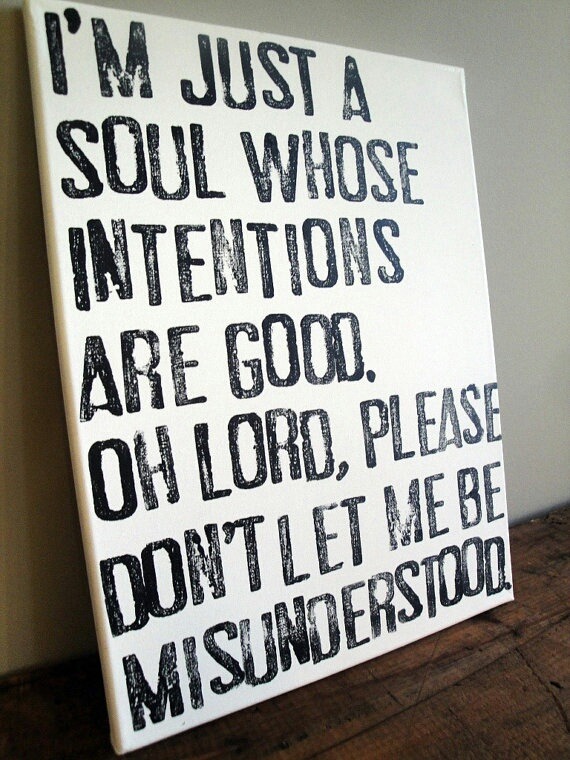 I'M JUST A
SOUL WHOSE
INTENTIONS
ARE GOOD.
OH LORD, PLEASE
DON'T LET ME BE
MISUNDERSTOOD.